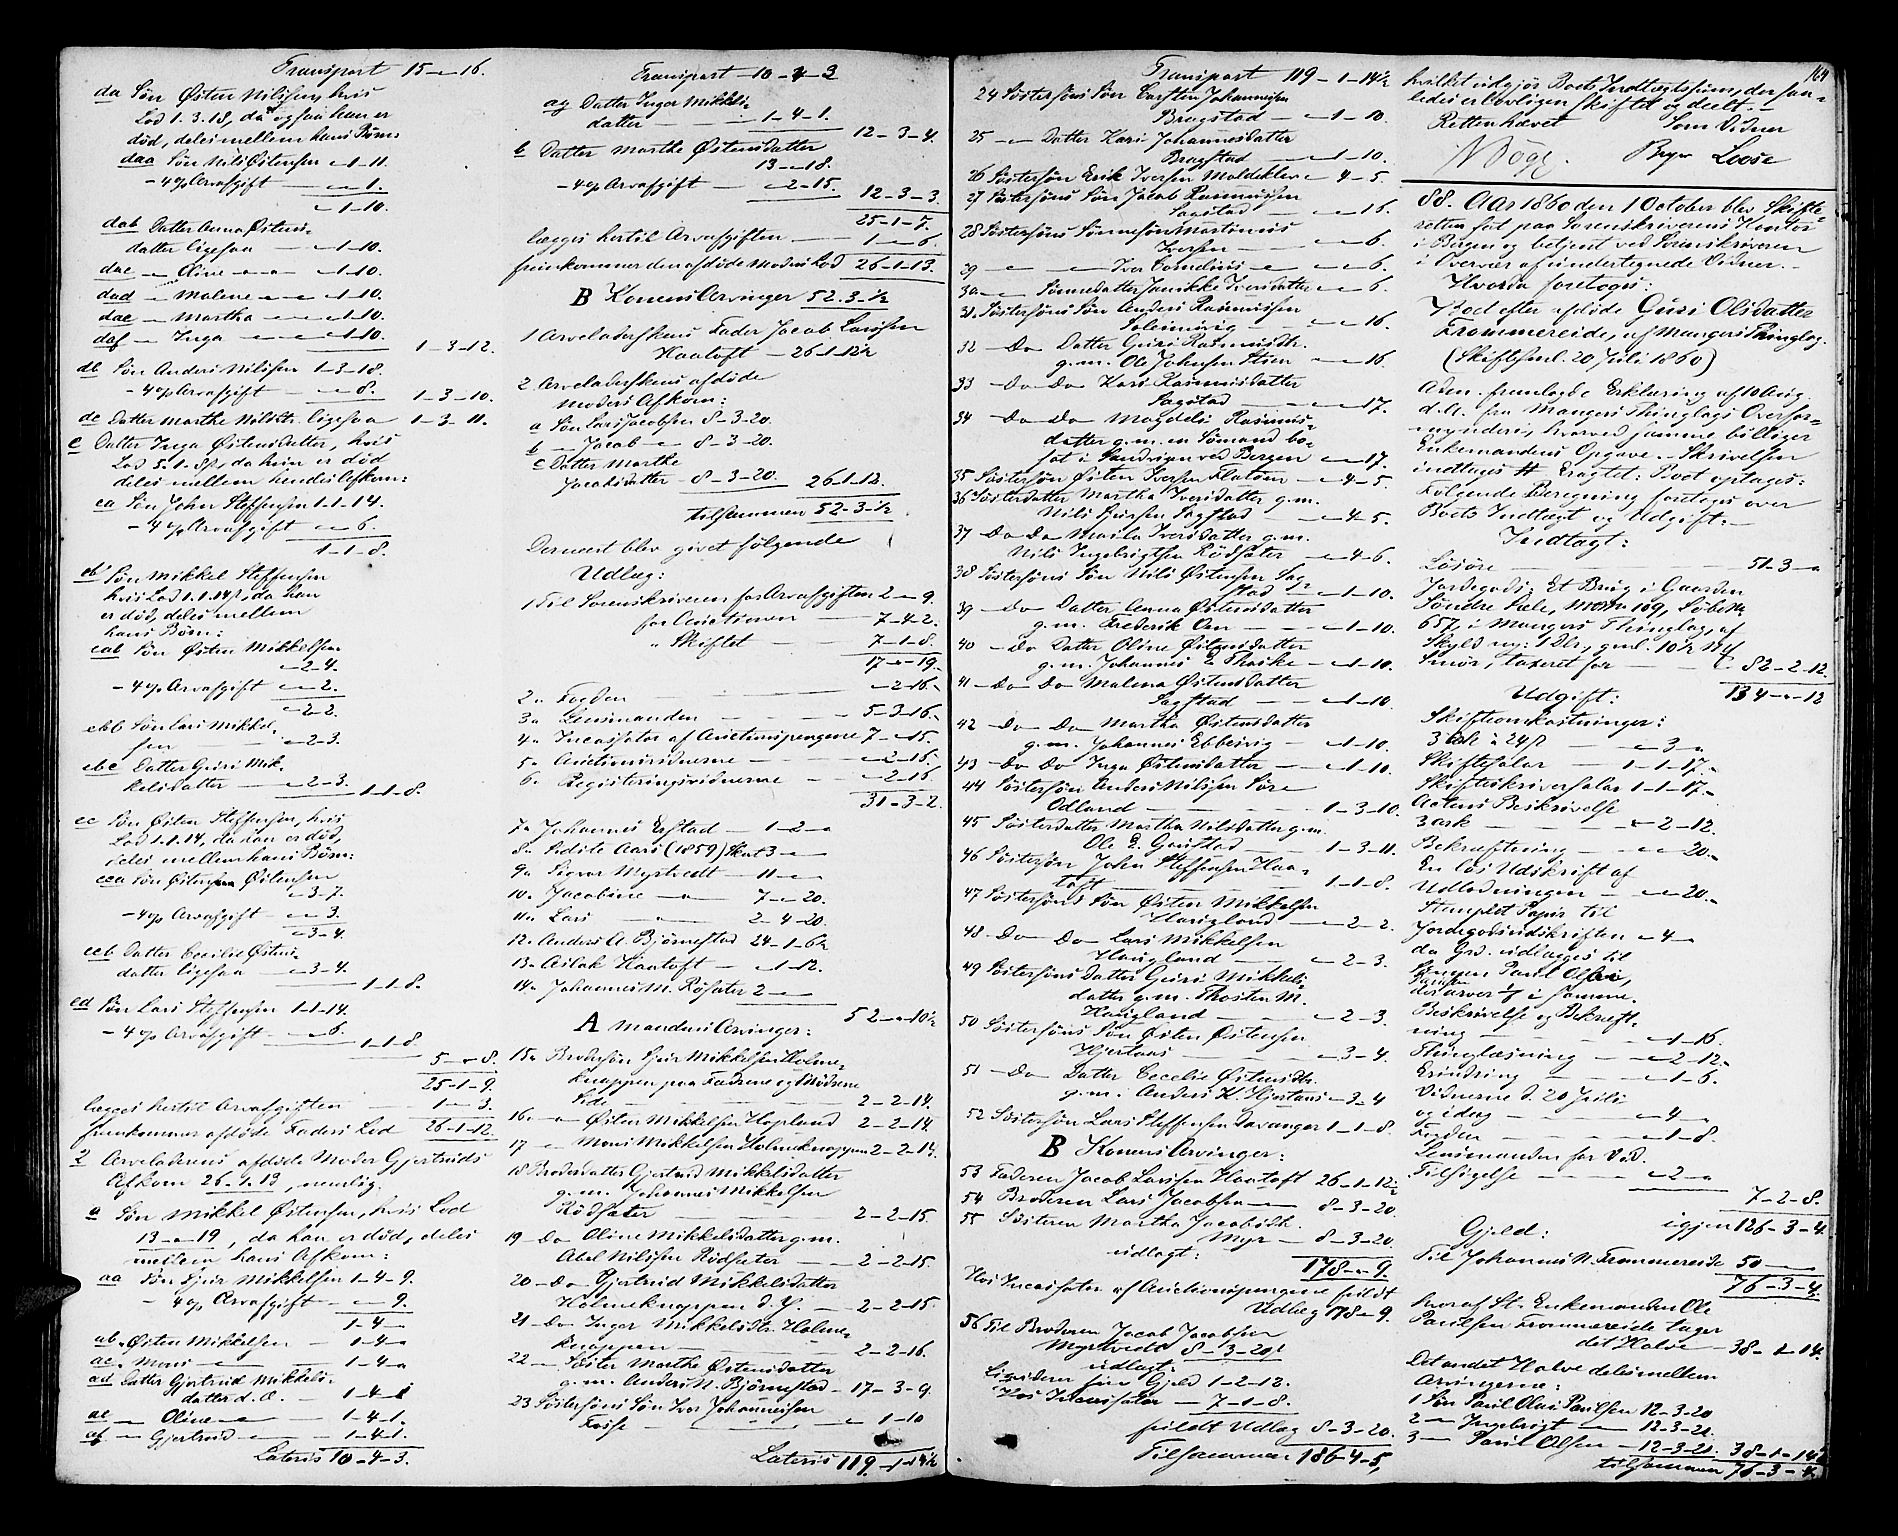 Transport 15 - " - 16.
da Søn Østen Nilssen, hvis
Lod 1. 3. 18, da ogsaa han er
død, deles mellem hans Børn:
daa Søn Nils Østensen " - 1 - 11.
- 4 % Arveafgift - " - " - 1.
" - 1 - 10.
dab Datter Anna Østens-
datter ligesaa " - 1 - 10.
dac - Oline " - 1 - 10.
dad - Malene " - 1 - 10.
dae - Martha " - 1 - 10.
daf - Inga " - 1 - 10.
1 - 3 - 12.
db Søn Anders Nilssen 1 - 3 - 18.
- 4 % Arveafgift " - " - 8.
1 - 3 - 10.
dc Datter Marthe Nilsdtr. ligesaa 1 - 3 - 11.
e Datter Inga Østensdatter, hvis
Lod 5 - 1 - 8, da hun er død
deles mellem hendes Afkom:
ea Søn John Steffensen 1 - 1 - 14.
- 4 % Arveafgift " - " - 6.
1 - 1 - 8.
eb Søn Mikkel Steffensen
hvis Lod 1. 1. 14, da han
er død, deles mellem
hans Børn:
eab Søn Østen Mikkelsen
" - 2 - 4.
- 4 % Arveafgift " - " - 2.
" - 2 - 2.
ebb Søn Lars Mikkel-
sen " - 2 - 3.
ebc Datter Guri Mik-
kelsdatter " - 2 - 3.
1 - 1 - 8.
ec Søn Østen Steffensen, hvis
Lod 1. 1. 14, da han er død,
deles mellem hans Børn:
eca Søn Østensen Østensen
" - 3 - 7.
- 4 % Arveafgift " - " - 3.
" - 3 - 4.
ecb Datter Cecilie Østens-
datter ligesaa " - 3 - 4.
1 - 1 - 8.
ed Søn Lars Steffensen 1 - 1 - 14.
- 4 % Arveafgift " - " - 6.
1 - 1 - 8.
5 - " - 8.
25 - 1 - 9.
lægges hertil Arveafgiften 1 - 3.
fremkommer afdøde Faders Lod 26 - 1 - 12.
2 Arveladerens afdøde Moder Gjertruds
Afkom 26. 1. 13, nemlig:
a Søn Mikkel Østensen, hvis Lod
13 - " - 19, da han er død, deles
mellem hans Afkom:
aa Søn Sjur Mikkelsen 1 - 4 - 9.
- 4 % Arveafgift " - " - 9.
1 - 4 - "
ab. Østen Mikkelsen - 1 - 4 - "
ac. Mons 1 - 4 - "
ad Datter Gjertrud Mikkels-
datter d. Æ. 1 - 4 - 1
ae - Oline 1 - 4 - 1.
af - Gjertrud 1 - 4 - 1.
Lateris 10 - 4 - 3.
Transport 10 - 4 - 3
ag Datter Inger Mikkels-
datter 1 - 4 - 1.
12 - 3 - 4.
b Datter Marthe Østensdatter
13 - " - 18.
- 4 % Arveafgift " - 2 - 15.
12 - 3 - 3.
25 - 1 - 7.
lægges hertil Arveafgiften 1 - " - 6.
fremkommer den afdøde Moders Lod 26 - 1 - 13.
B Konens Arvinger 52. 3 - ½
1 Arveladerskens Fader Jacob Larssen
Haatoft - 26 - 1 - 12½
2. Arveladerskens afdøde
Moders Afkom:
a Søn Lars Jacobsen 8 - 3 - 20.
b - Jacob 8 - 3 - 20.
c Datter Marthe
Jacobsdatter 8 - 3 - 20.
26 - 1 - 12.
tilsammen 52 - 3 - ½
Dernæst blev givet følgende
Udlæg:
1 Til Sorenskriveren for Arveafgiften 2 - " - 9.
for Auctionen 7 - 4 - 2.
" Skiftet 7 - 1 - 8.
17 - " - 19.
2 " Fogden " - 2 - 16.
3 " Lensmanden 5 - 3 - 16.
4 " Incassator af Auctionspengene 7 - " - 15.
5 " Auctionsvidnerne " - 2 - 16.
6 " Registeringsvidnerne " - 2 - 16
31 - 3 - 2.
7 " Johannes Erstad 1 - 2 - "
8 " Sidste Aars (1859) Skat 3 - "
9 " Sigvor Myrtvedt 11 - "
10 " Jacobine 7 - " - 20.
11 " Lars 2 - 4 - 20.
12 " Anders A. Bjørnestad 24 - 1 - 6½
13 " Aslak Haatoft " - 1 - 12.
14 " Johannes M. Røsæter 2 - "
52 - " - 10½
A Mandens Arvinger:
15 " Brodersøn Sjur Mikkelsen Holme-
knappen paa Fædrene og Mødrene
Side 2 - 2 - 14.
16 " Østen Mikkelsen Hopland 2 - 2 - 14.
17 Mons Mikkelsen Holmeknappen 2 - 2 - 14.
18 Broderdatter Gjertrud Mikkelsdatter
g. m. Johannes Mikkelsen
Rødsæter 2 - 2 - 15.
19 - Do Oline Mikkelsdatter g. m.
Abel Nilssen Rødsæter 2 - 2 - 15.
20 - Do Gjertrud Mikkelsdatter
Holmeknappen d. Y. 2 - 2 - 15.
21 - Do Inger Mikkelsdtr. Holme-
knappen 2 - 2 - 16.
22 - Søster Marthe Østensdatter
g. m. Anders N. Bjørnestad 17 - 3 - 9.
23 Søstersøns Søn Iver Johannessen
Fosse " - 1 - 10
Lateris 119 - 1 - 14½
Transport 119 - 1 - 14½
24 Søstersøns Søn Carsten Johannessen
Bragstad " - 1 - 10.
25 - Datter Kari Johannesdatter
Bragstad " - 1 - 10.
26 Søstersøn Erik Iversen Moldeklev " - 4 - 5.
27 Søstersøns Søn Jacob Rasmussen
Sagstad " - " - 16.
28 Søstersøns Sønnesøn Martinus
Iversen " - " - 6.
29 - Iver Cornelius " - " - 6.
30 - Sønnedatter Jannikke Iversdatter " - " - 6.
31. Søstersøns Søn Anders Rasmussen
Soleimsvig " - " - 16.
32 - Do Datter Guri Rasmusdtr.
g. m. Ole Johnsen Stien " - " - 16
33 - Do Do Kari Rasmusdatter
Sagstad " - " - 17.
34 - Do Do Magdeli Rasmus-
datter g. m. en Sømand bo-
sat i Sandvigen ved Bergen " - " - 17.
35 Søstersøn Østen Iversen Flatøen " - 4 - 5.
36 Søsterdatter Martha Iversdatter g. m.
Nils Sjursen Sagstad " - 4 - 5.
37 - Do Do Marta Iversdatter g. m.
Nils Ingebrigtsen Rødsæter " - 4 - 6.
38 Søstersøns Søn Nils Østensen Sag-
stad " - 1 - 10.
39 - Do Datter Anna Østensdatter
g. m. Frederik Orn " - 1 - 10.
40 - Do Datter Oline Østensdatter
g. m. Johannes E. Thoske " - 1 - 10.
41 - Do Do Malena Østensdatter
Sagstad " - 1 - 10.
42 - Do Do Martha Østensdatter
g. m. Johannes Ebbesvig " - 1 - 10.
43 - Do Do Inga Østensdatter " - 1 - 10.
44 Søstersøn Anders Nilssen Søre
Odland 1 - 3 - 10.
45 Søsterdatter Martha Nilsdatter g. m.
Ole E. Gaustad 1 - 3 - 11.
46 Søstersøn John Steffensen Haa-
toft 1 - 1 - 8.
47 Søstersøns Søn Østen Mikkelsen
Haugland " - 2 - 2.
48 - Do Do Lars Mikkelsen
Haugland " - 2 - 3.
49 Søstersøns Datter Guri Mikkels-
datter g. m. Thosten M.
Haugland " - 2 - 3.
50 Søstersøns Søn Østen Østensen
Hjertaas " - 3 - 4.
51 - Do Datter Cecelie Østensdtr.
g. m. Anders K. Hjertaas " - 3 - 4
52 Søstersøn Lars Steffensen Davanger 1 - 1 - 8.
B Konens Arvinger:
53 Faderen Jacob Larssen Haatoft 26 - 1 - 12½
54 Broderen Lars Jacobsen 8 - 3 - 20.
55 Søsteren Martha Jacobsdtr.
Myr - 8 - 3 - 20.
udlagt: 178 - " - 9.
Hos Incassator af Auctionspengene fuldt
Udlæg 178 - " - 9.
56 Til Broderen Jacob Jacobsen
Myrtvedt 8 - 3 - 20
udlagt:
Gjeld 1 - 2 - 12.
Hos Incassator - 7 - 1 - 8.
fuldt Udlæg 8 - 3 - 20.
Tilsammen 186 - 4 - 5,
164
hvilket udgjør Boets Indtægtssum, der saa-
ledes er lovligen skiftet og deelt. -
Retten hævet Som Vidner
Bøge. Loose
88. Aar 1860 den 1 October blev Skifte-
retten sat paa Sorenskriverens Kontor
i Bergen og betjent ved Sorenskriveren
i Overvær af undertegnede Vidner. -
Hvorda foretoges:
Bod efter afdøde Guri Olsdatter
Frommereide, af Mangers Thinglag.
(Skiftesml. 20 Juli 1860)
Adm. fremlagde Erklæring af 10 Aug.
d. A. fra Mangers Thinglags Overfor-
mynderi, hvorved samme billiger
Enkemandens Opgave. - Skrivelsen
indtages # Eragtet: Boet optages:
Følgende Beregning foretoges over
Boets Indtægt og Udgift: -
Indtægt:
Løsøre 51 - 3 - "
Jordegods: Et Brug i Gaarden
Søndre Sæle, Matr. 109, Løbe Nr.
657, i Mangers Thinglag, af
Skyld ny: 1 Dlr, gml. 10½ Mk
Smør, taxeret for 82 - 2 - 12.
134 - " - 12
Udgift:
Skifteomkostninger:
3 Ark à 24 ß " - 3 - "
Skiftesalær 1 - 1 - 17.
Skifteskriversalær 1 - 1 - 17.
Actens Beskrivelse
3 Ark " - 2 - 12.
Bekræftning " - " - 20.
En løs Udskrift af
Udlodningen " - " - 20.
Stemplet Papir til
Jordegodsudskriften " - 4 - "
da Grd. udlægges til
Sønnen Paul Olsen,
der arver i samme.
Beskrivelse og Bekræft-
ning " - 1 - 16.
Thinglæsning " - 2 - 12.
Erindring " - 1 - 6.
Vidnerne d. 20 Juli
og idag " - 4 - "
Fogden " - 1 - 8.
Lensmanden for Vid.
Tilsigelse " - 2 - "
7 - 2 - 8.
igjen 126 - 3 - 4.
Gjeld:
Til Johannes N. Frommereide 50 - "
76 - 3 - 4.
hvoraf St. Enkemanden Ole
Paulsen Frommereide tager
det Halve - 38 - 1 - 14.
Det andet Halve deles mellem
Arvingerne:
1 Søn Paul Olai Paulsen 12 - 3 - 20
2 - Ingebrigt 12 - 3 - 21.
3 - Paul Olsen - 12 - 3 - 21.
38 - 1 - 14
tilsammen 76 - 3 - 4.